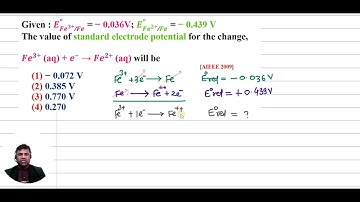 Given : E°Fe³⁺/Fe = − 0.036V; E°Fe²⁺/Fe = − 0.439 V
The value of standard electrode potential for the change,
Fe³⁺ (aq) + e⁻ → Fe²⁺ (aq) will be
[AIEEE 2009]
(1) − 0.072 V
(2) 0.385 V
(3) 0.770 V
(4) 0.270
Fe³⁺ + 3e⁻ → Fe E°red = − 0.036V
Fe → Fe⁺⁺ + 2e⁻ E°red = + 0.439V
Fe³⁺ + 1e⁻ → Fe⁺⁺ E°red = ?